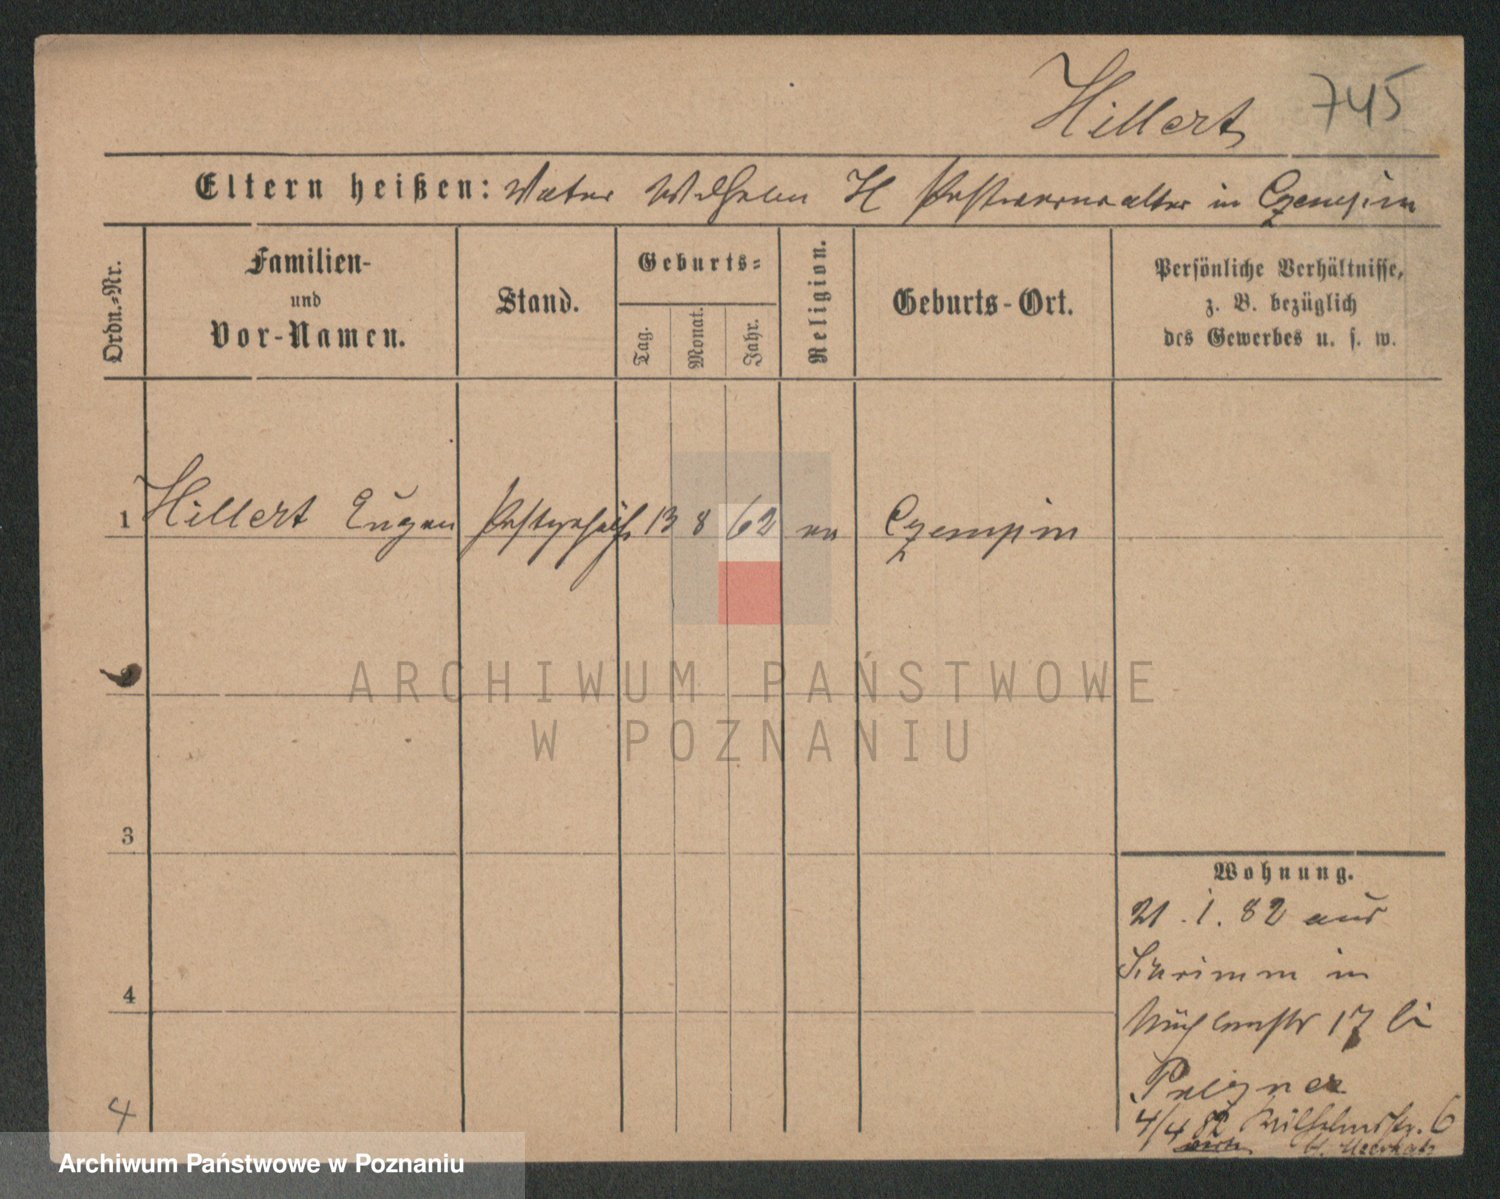 Hillert 745
Eltern heißen: Vater Wilhelm H Postverwalter in Czempin
Ordn.-Nr.
Familien-
und
Vor-Namen.
Stand.
Geburts-
Tag.
Monat.
Jahr.
Religion.
Geburts-Ort.
Persönliche Verhältnisse,
z. B. bezüglich
des Gewerbes u. s. w.
1 Hillert Eugen Postgehülf 13 8 62 ev Czempin
ARCHIWUM PAŃSTWOWE
W POZNANIU
3
4
Wohnung.
21.1.82 aus
Schrimm in
Mühlenstr 17 bei
4/4 82 Wilhelmstr. 6
4
Archiwum Państwowe w Poznaniu